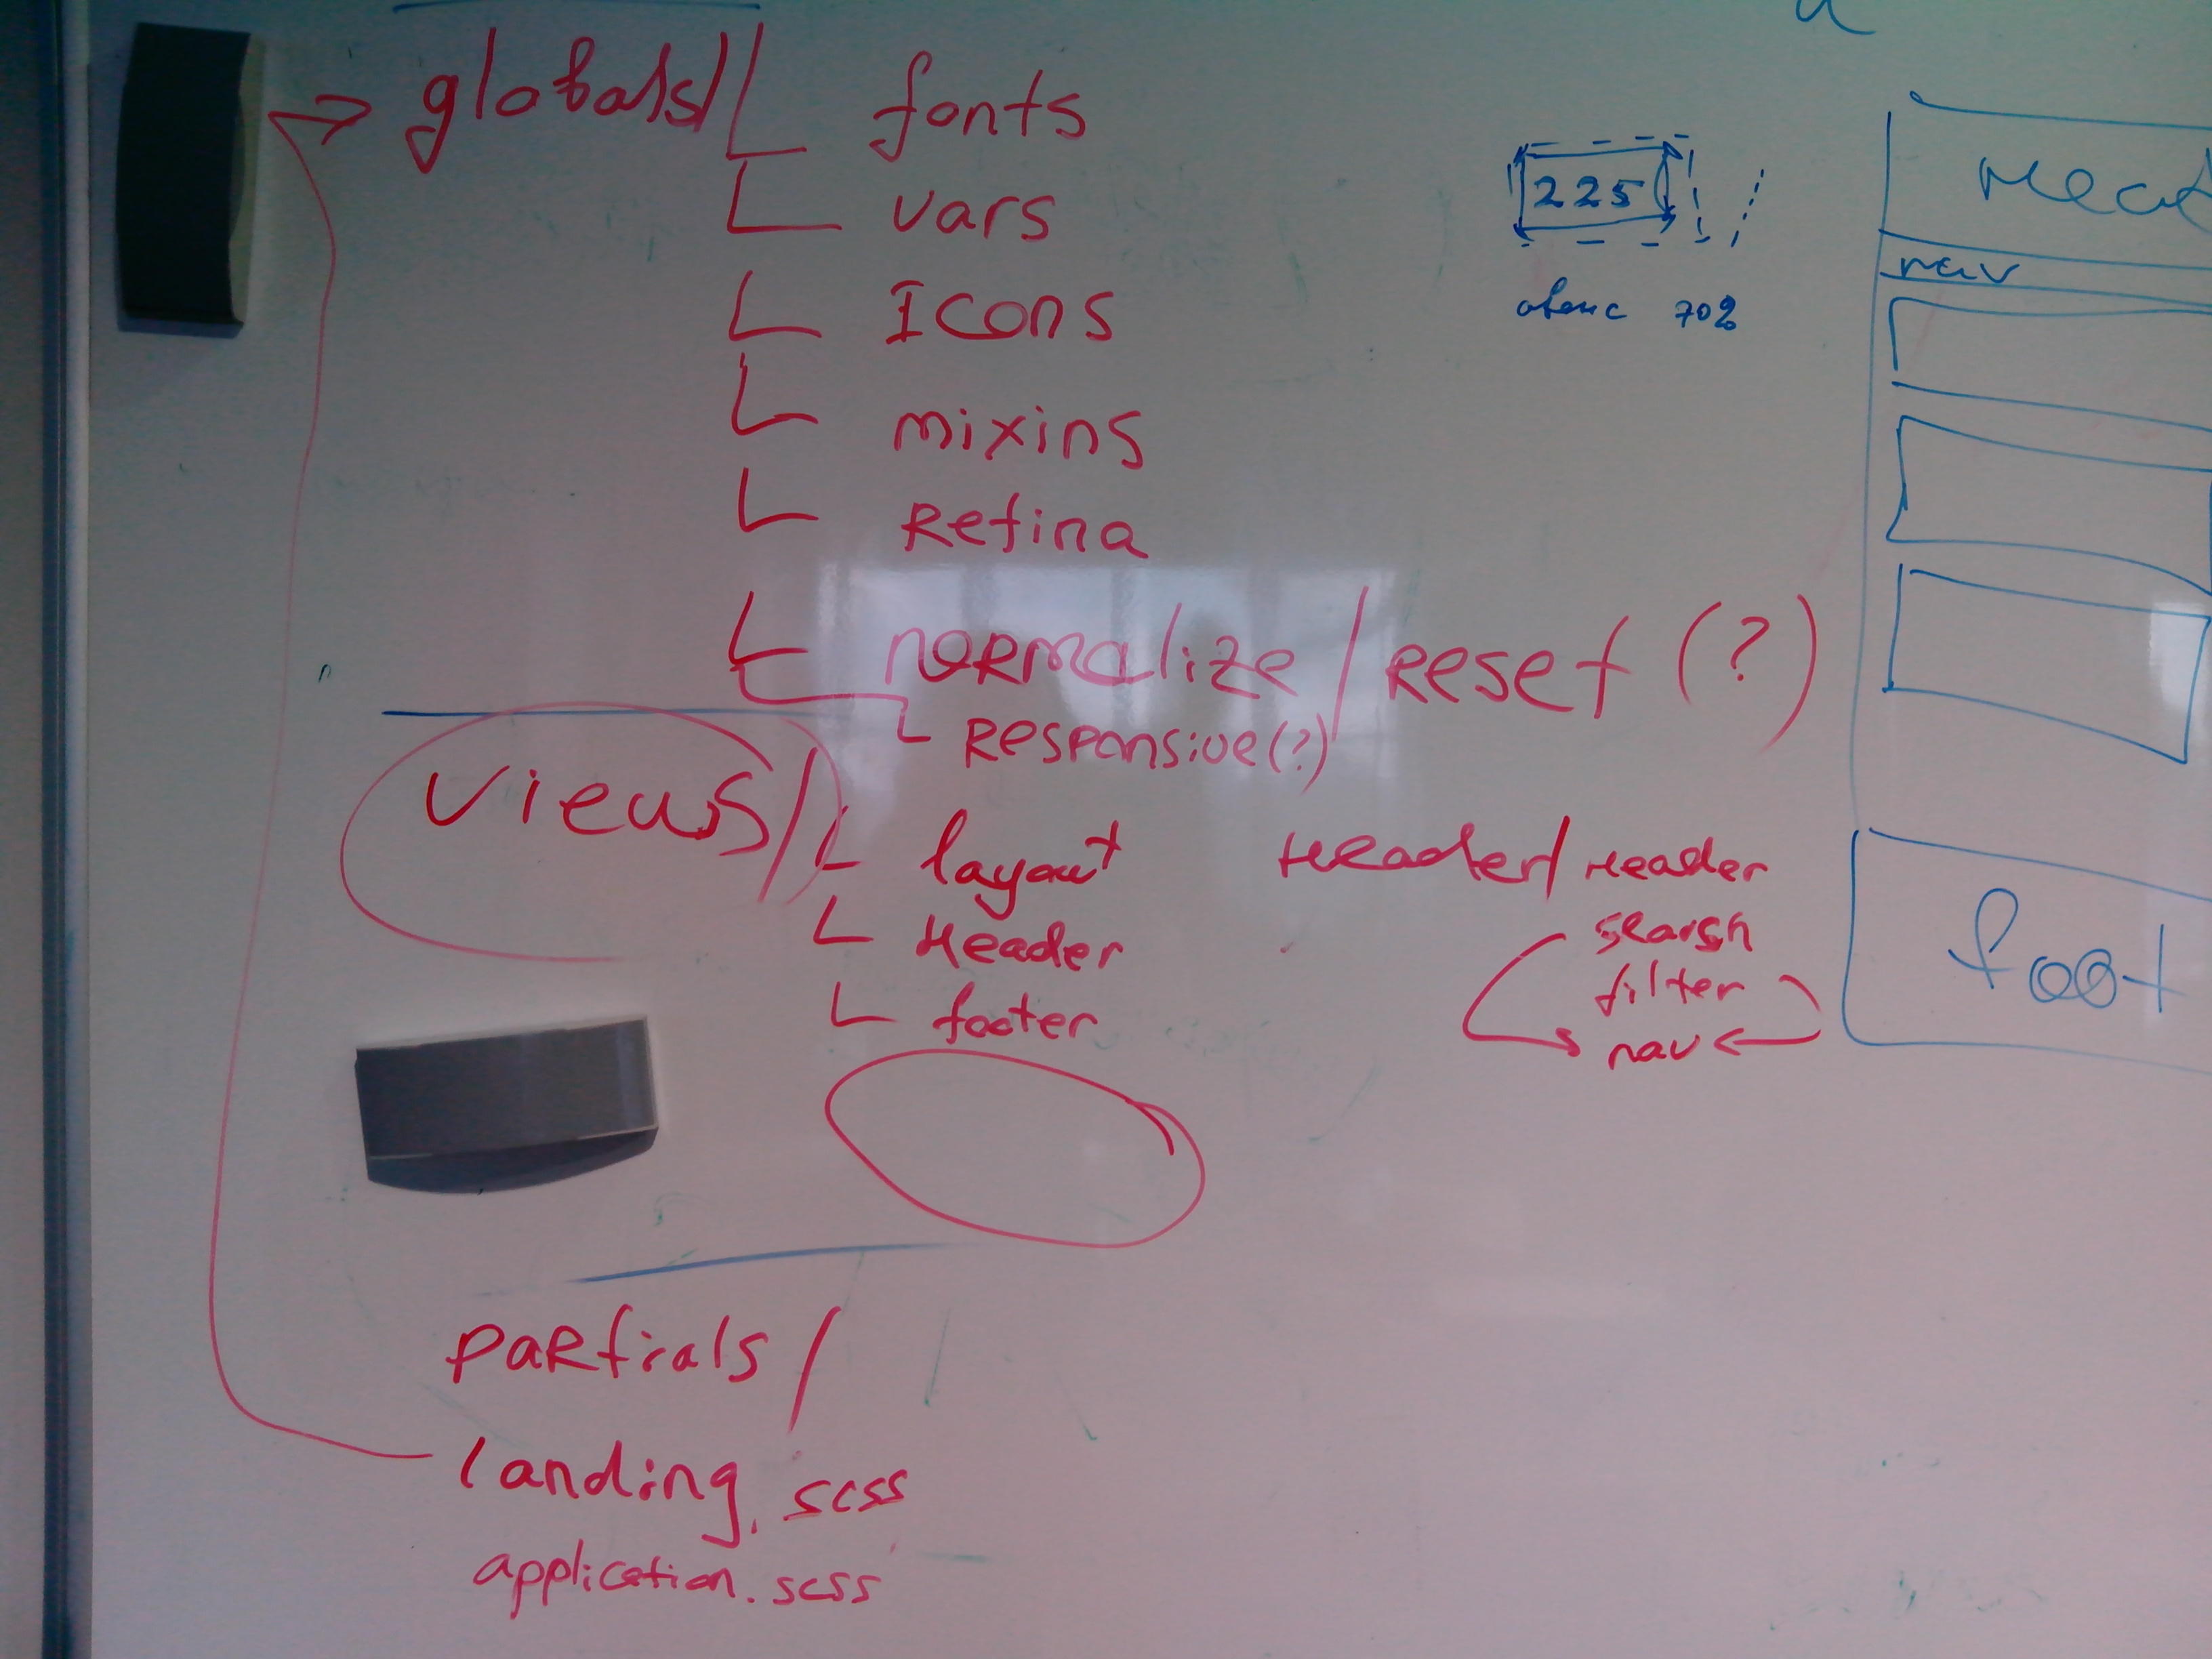 globals/
fonts
vars
Icons
mixins
Retina
normalize / Reset (?)
Responsive (?)
views/
layout
Header
footer
Header/ Header
searsh
filter
nav
partials /
landing.scss
application.scss
225
70%
nav
foot